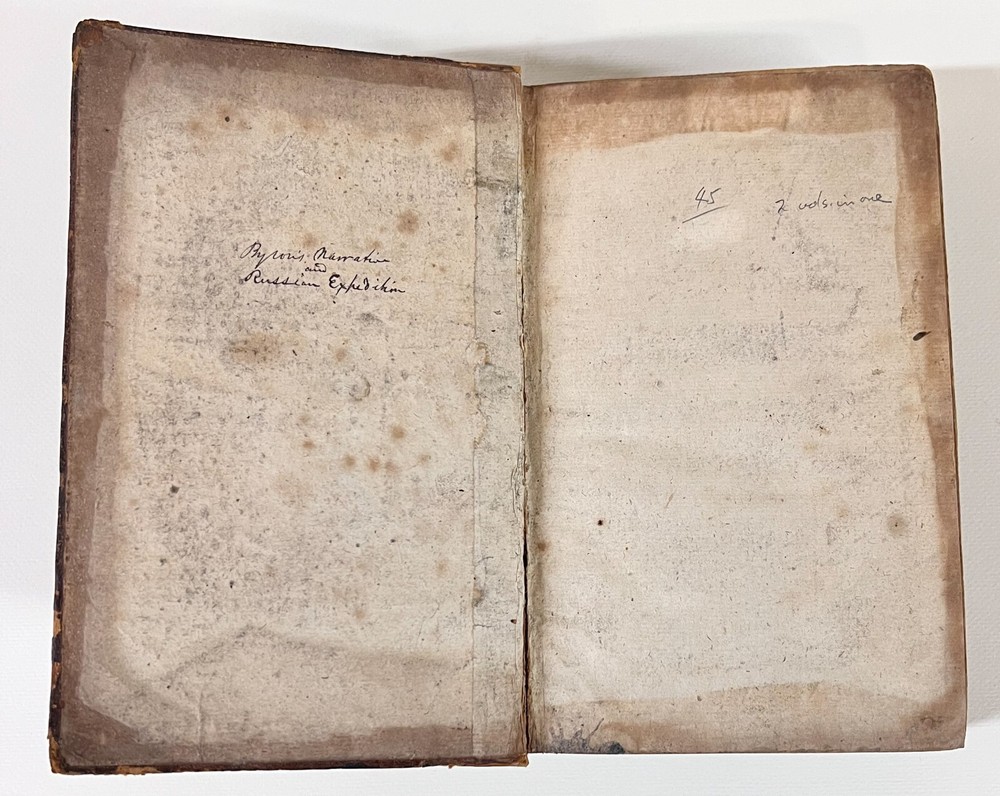 Byron's Narrative
and
Russian Expedition
45
2 vols in one